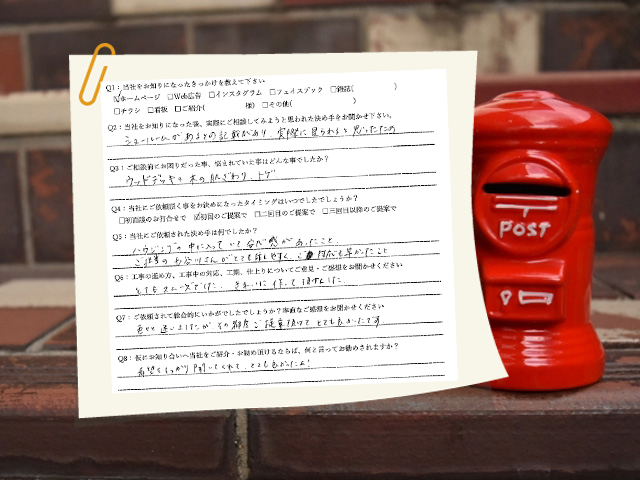 Q1：当社をお知りになったきっかけを教えて下さい
☑ホームページ □Web広告 □インスタグラム □フェイスブック □雑誌( )
□チラシ □看板 □ご紹介( 様) □その他( )
Q2：当社をお知りになった後、実際にご相談してみようと思われた決め手をお聞かせ下さい。
ショールームがあるとの記載があり、実際に見られると思ったため
Q3：ご相談前にお困りだった事、悩まれていた事はどんな事でしたか？
ウッドデッキの木の肌ざわり、トゲ
Q4：当社にご依頼頂く事をお決めになったタイミングはいつでしたでしょうか？
□初面談のお打合せで ☑初回のご提案で □二回目のご提案で □三回目以降のご提案で
Q5：当社にご依頼された決め手は何でしたか？
ハウジングの中に入っている安心感があったこと、
ご担当の さんがとても話しやすく、 対応も早かったこと
Q6：工事の進め方、工事中の対応、工期、仕上りについてご意見・ご感想をお聞かせください
とてもスムーズでした。きれいに作って頂けました。
Q7：ご依頼されて総合的にいかがでしたでしょうか？率直なご感想をお聞かせください
色々と迷いましたが その都度ご提案頂けて とても良かったです
Q8：仮にお知り合いへ当社をご紹介・お勧め頂けるならば、何と言ってお勧めされますか？
希望をしっかり聞いてくれて、とても良かったよ！
POST